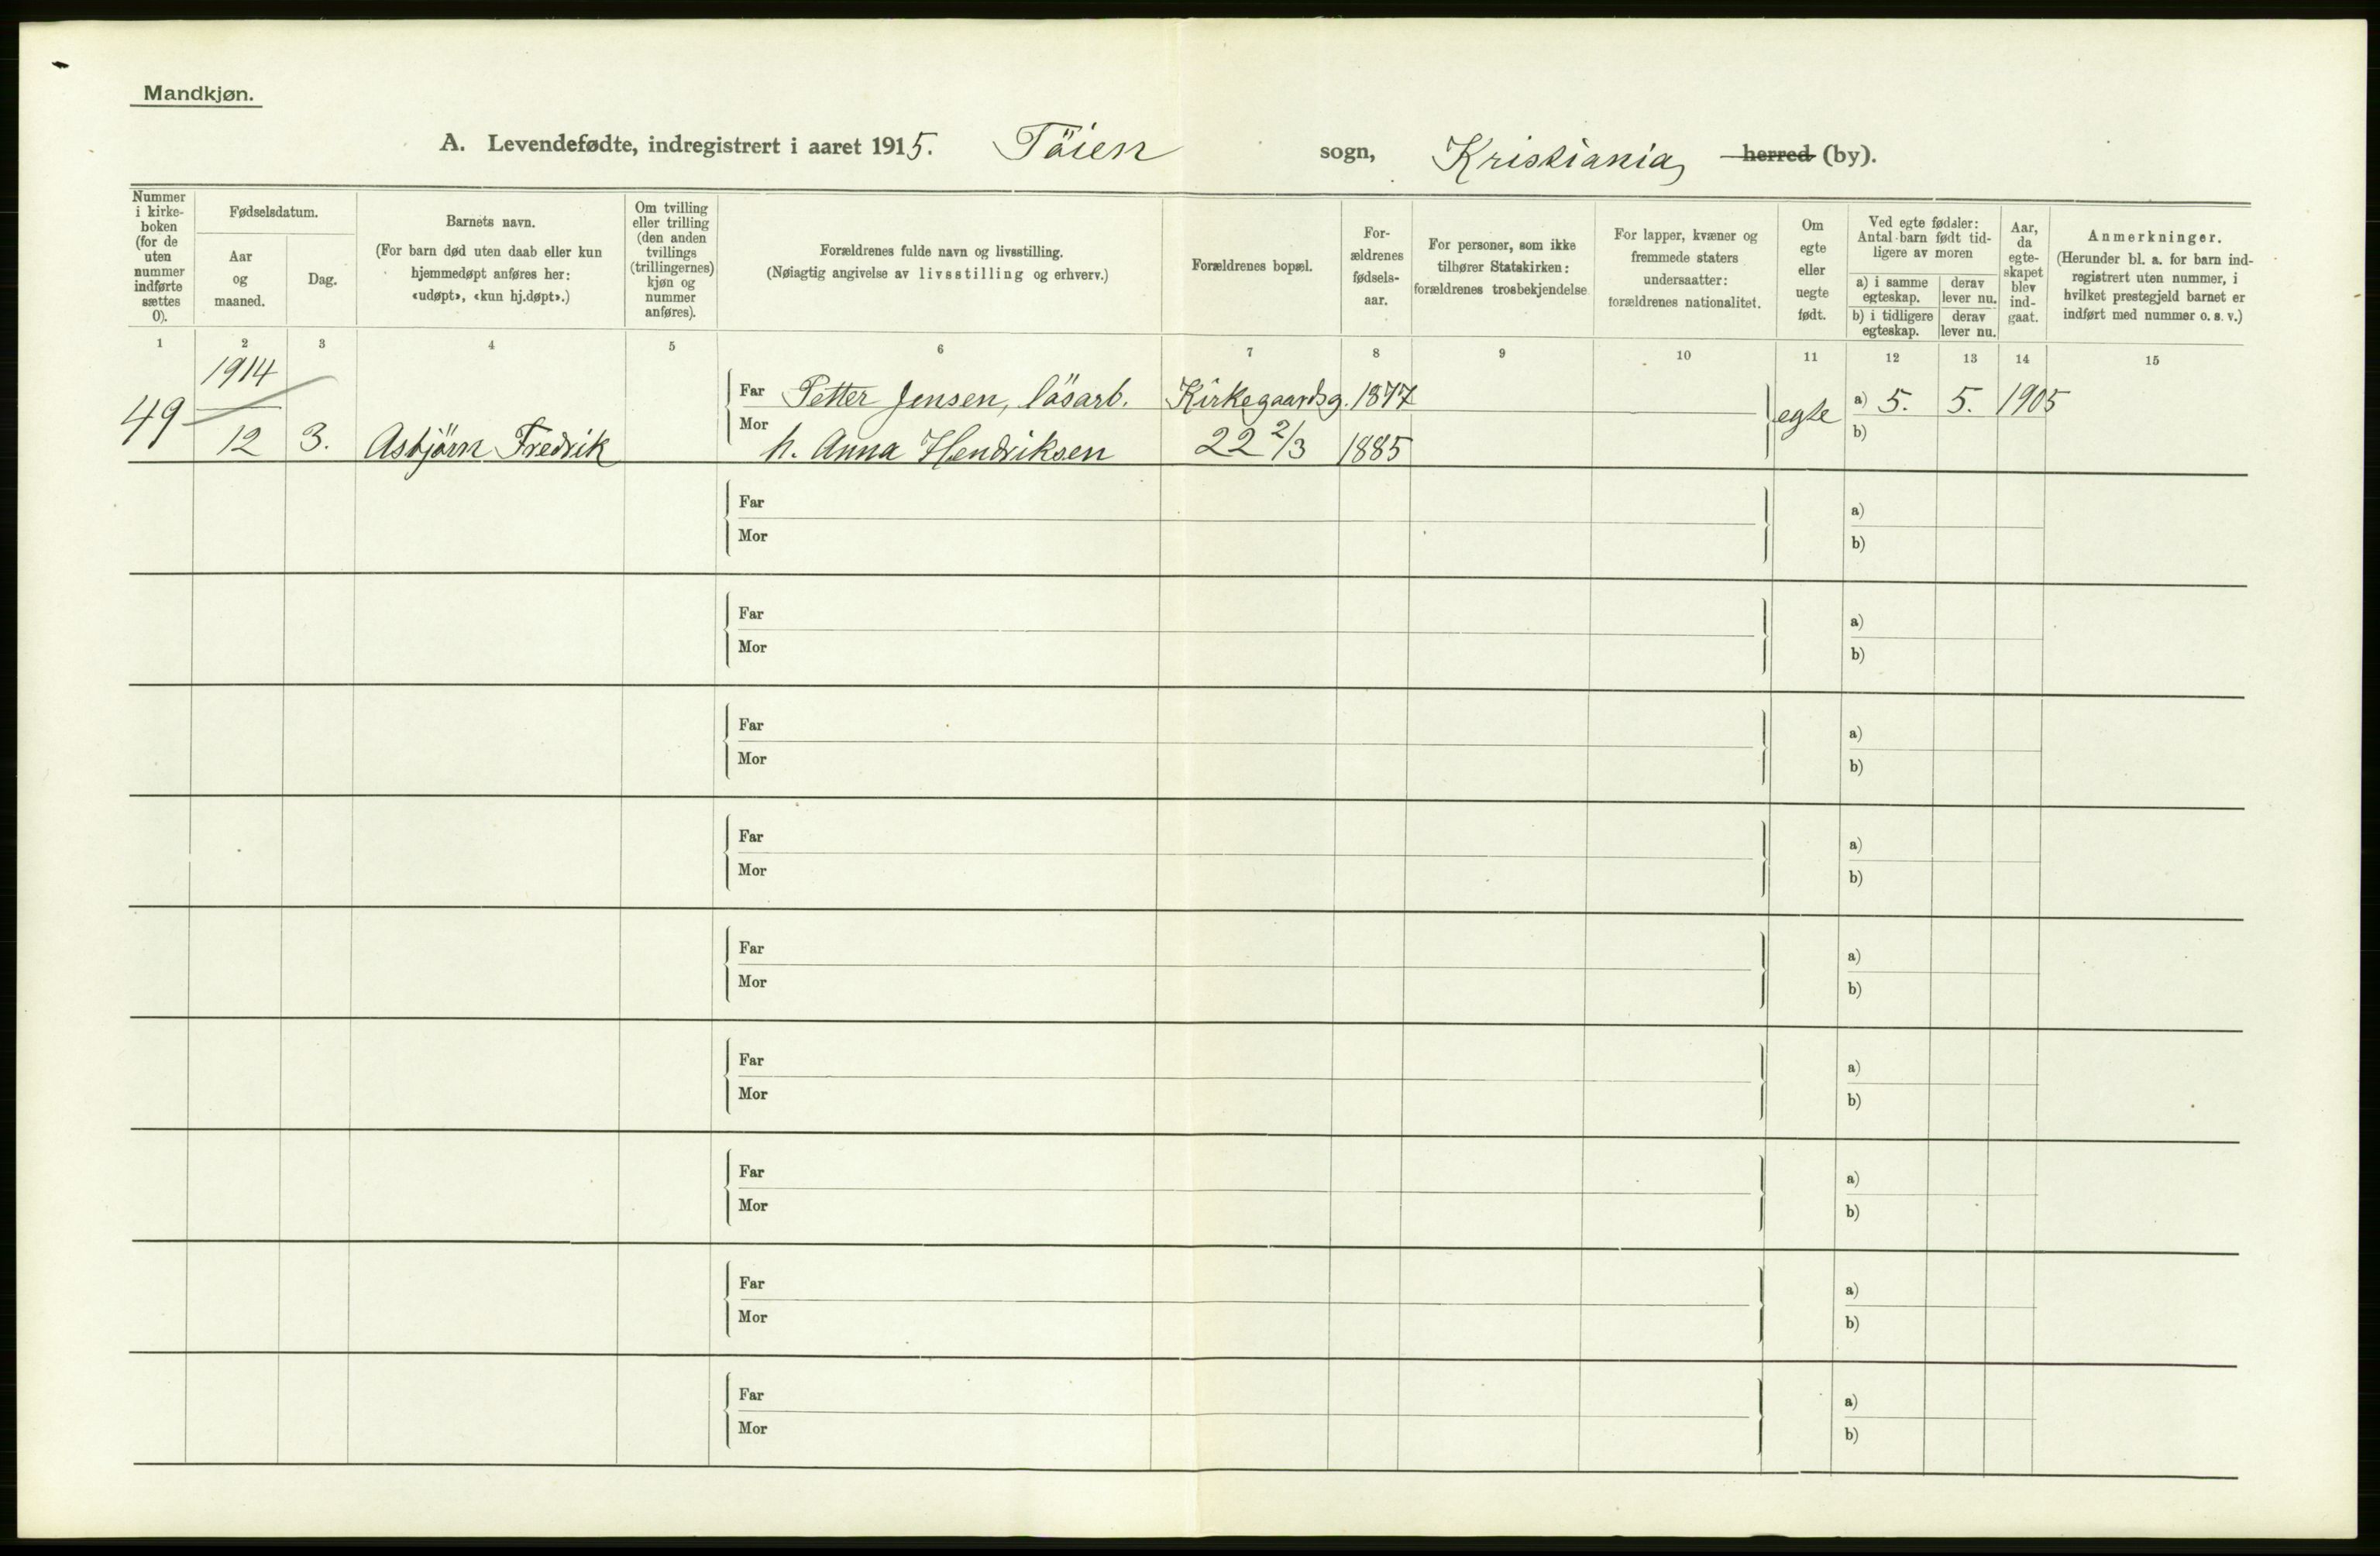 Mandkjøn.
A. Levendefødte, indregistrert i aaret 1915. Töien sogn, Kristiania herred (by).
Nummer i kirke-boken (for de uten nummer indførte sættes 0).
Fødselsdatum.
Aar og maaned.
Dag.
Barnets navn.
(For barn død uten daab eller kun hjemmedøpt anføres her: «udøpt», «kun hj.døpt».)
Om tvilling eller trilling (den anden tvillings (trillingernes) kjøn og nummer anføres).
Forældrenes fulde navn og livsstilling.
(Nøiagtig angivelse av livsstilling og erhverv.)
Forældrenes bopæl.
For-ældrenes fødsels-aar.
For personer, som ikke tilhører Statskirken: forældrenes trosbekjendelse
For lapper, kvæner og fremmede staters undersaatter: forældrenes nationalitet.
Om egte eller uegte født.
Ved egte fødsler: Antal barn født tid-ligere av moren
a) i samme egteskap.
derav lever nu.
b) i tidligere egteskap.
derav lever nu.
Aar, da egte-skapet blev ind-gaat.
Anmerkninger.
(Herunder bl. a. for barn ind-registrert uten nummer, i hvilket prestegjeld barnet er indført med nummer o. s. v.)
1 2 3 4 5 6 7 8 9 10 11 12 13 14 15
1914
49 12 3. Asbjörn Fredrik
Far Petter Jensen, løsarb. Kirkegaardsg. 1877 egte a) 5. 5. 1905
Mor h. Anna Hendriksen 22 2/3 1885 b)
Far a)
Mor b)
Far a)
Mor b)
Far a)
Mor b)
Far a)
Mor b)
Far a)
Mor b)
Far a)
Mor b)
Far a)
Mor b)
Far a)
Mor b)
Far a)
Mor b)